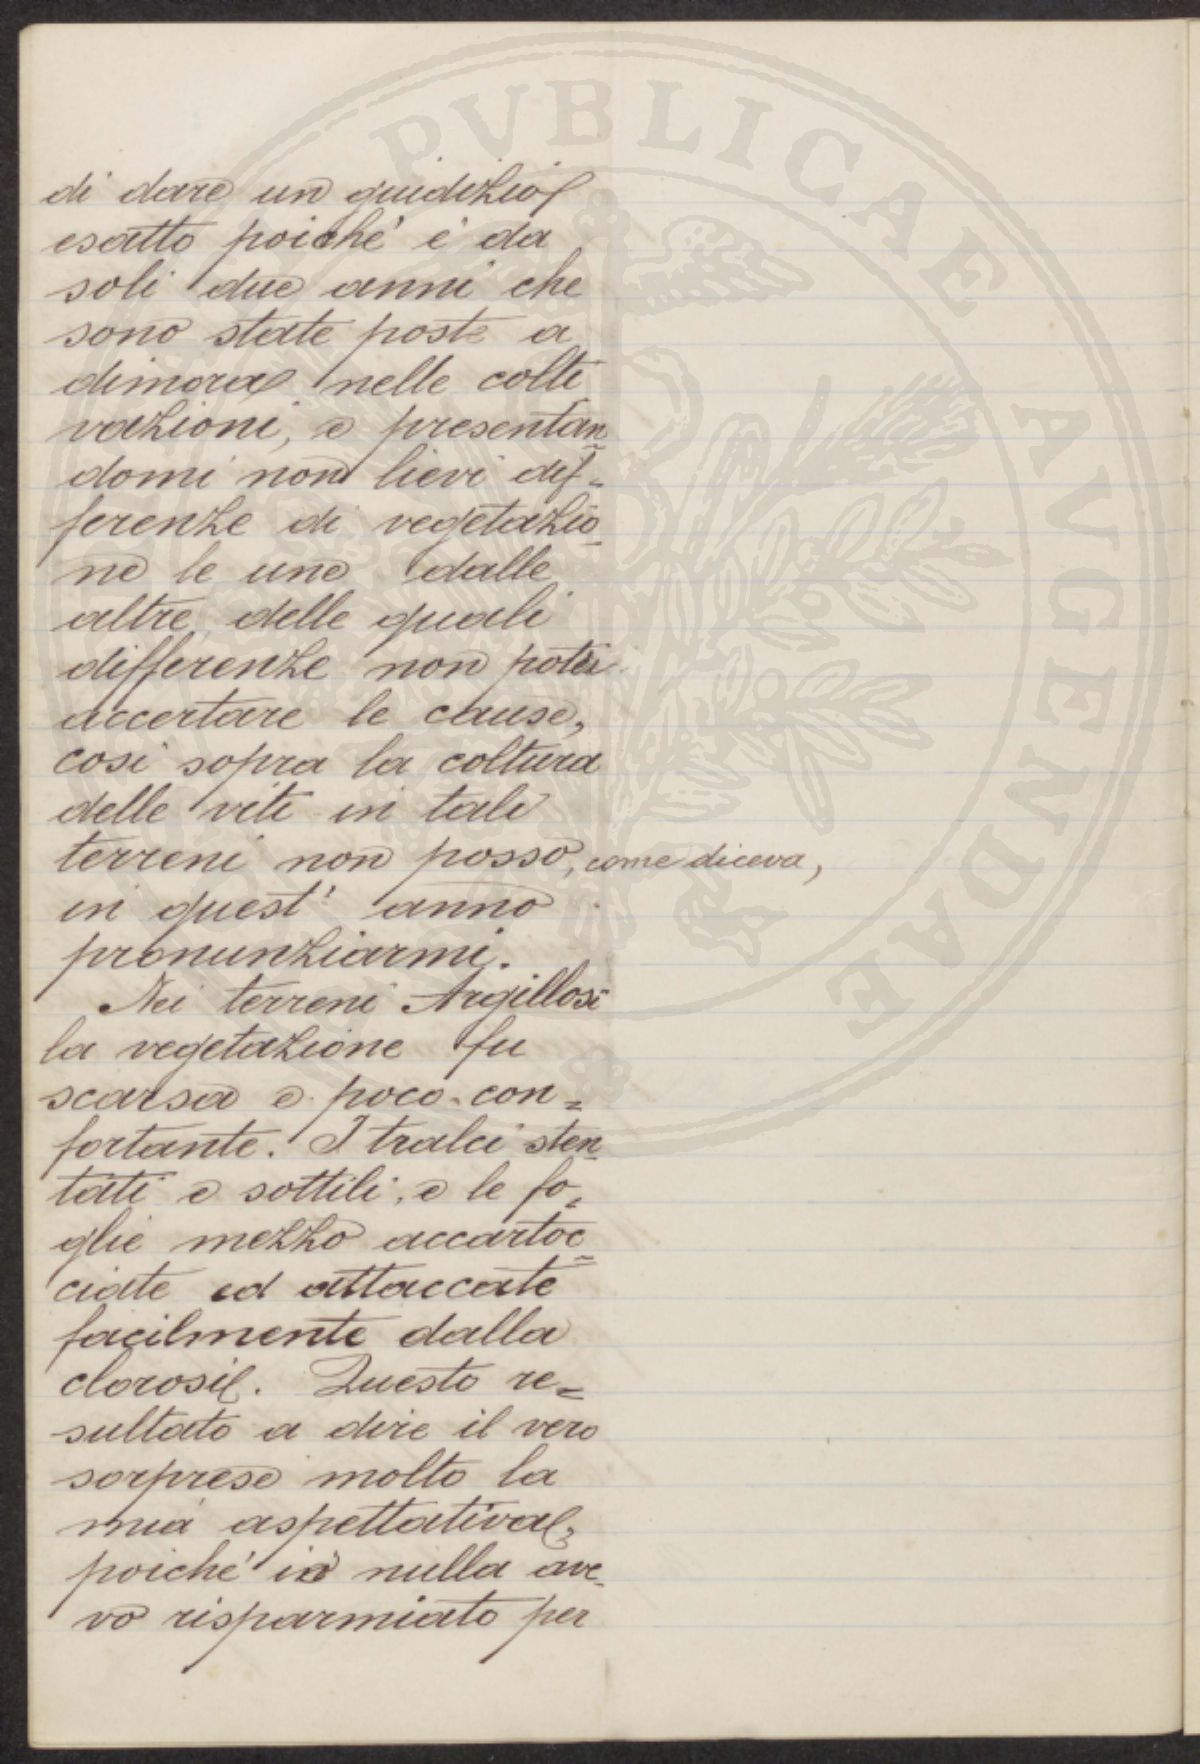 di dare un guidizio
esatto poiché è da
soli due anni che
sono state poste a
dimora nelle colti
vazioni, e presentan=
domi non lievi dif=
ferenze di vegetazio=
ne le une dalle
altre, delle quali
differenze non potei
accertare le cause,
così sopra la coltura
delle viti in tali
terreni non posso, come diceva,
in quest' anno
pronunziarmi.
Nei terreni Argillosi
la vegetazione fu
scarsa e poco con=
fortante. I tralci sten
tati e sottili, e le fo=
glie mezzo accartoc=
ciate ed attaccate
facilmente dalla
clorosi. Questo re=
sultato a dire il vero
sorprese molto la
mia aspettativa,
poiché in nulla ave=
vo risparmiato per
PVBLICAE AVGENDAE